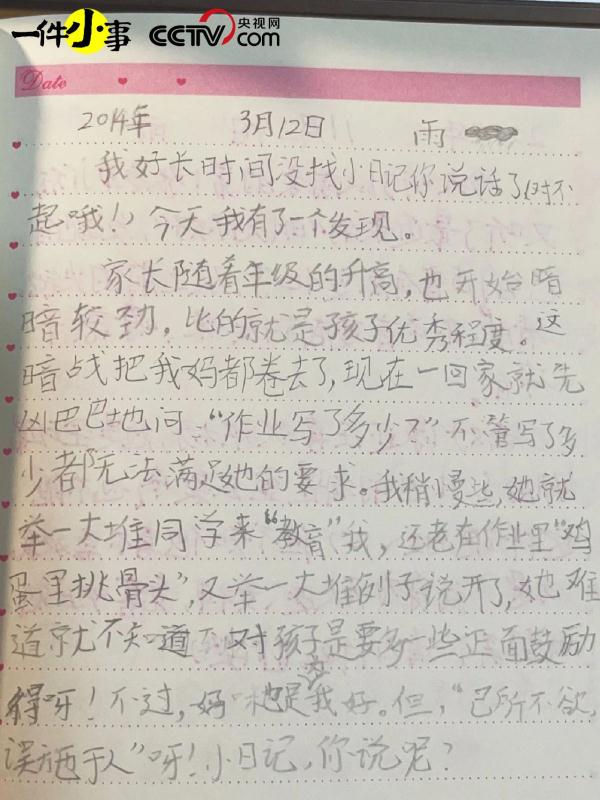 一件小事 CCTV 央视网 com
Date
2014年 3月12日 雨
我好长时间没找小日记你说话了(对不
起哦!)今天我有了一个发现。
家长随着年级的升高,也开始暗
暗较劲,比的就是孩子优秀程度。这
暗战把我妈都卷去了,现在一回家就先
凶巴巴地问:“作业写了多少?”不管写了多
少都无法满足她的要求。我稍慢些,她就
举一大堆同学来“教育”我,还老在作业里“鸡
蛋里挑骨头”,又举一大堆例子说开了,她难
道就不知道?对孩子是要多一些正面鼓励
得呀!不过,妈妈也是为我好。但,“己所不欲,
误施于人”呀!小日记,你说呢?